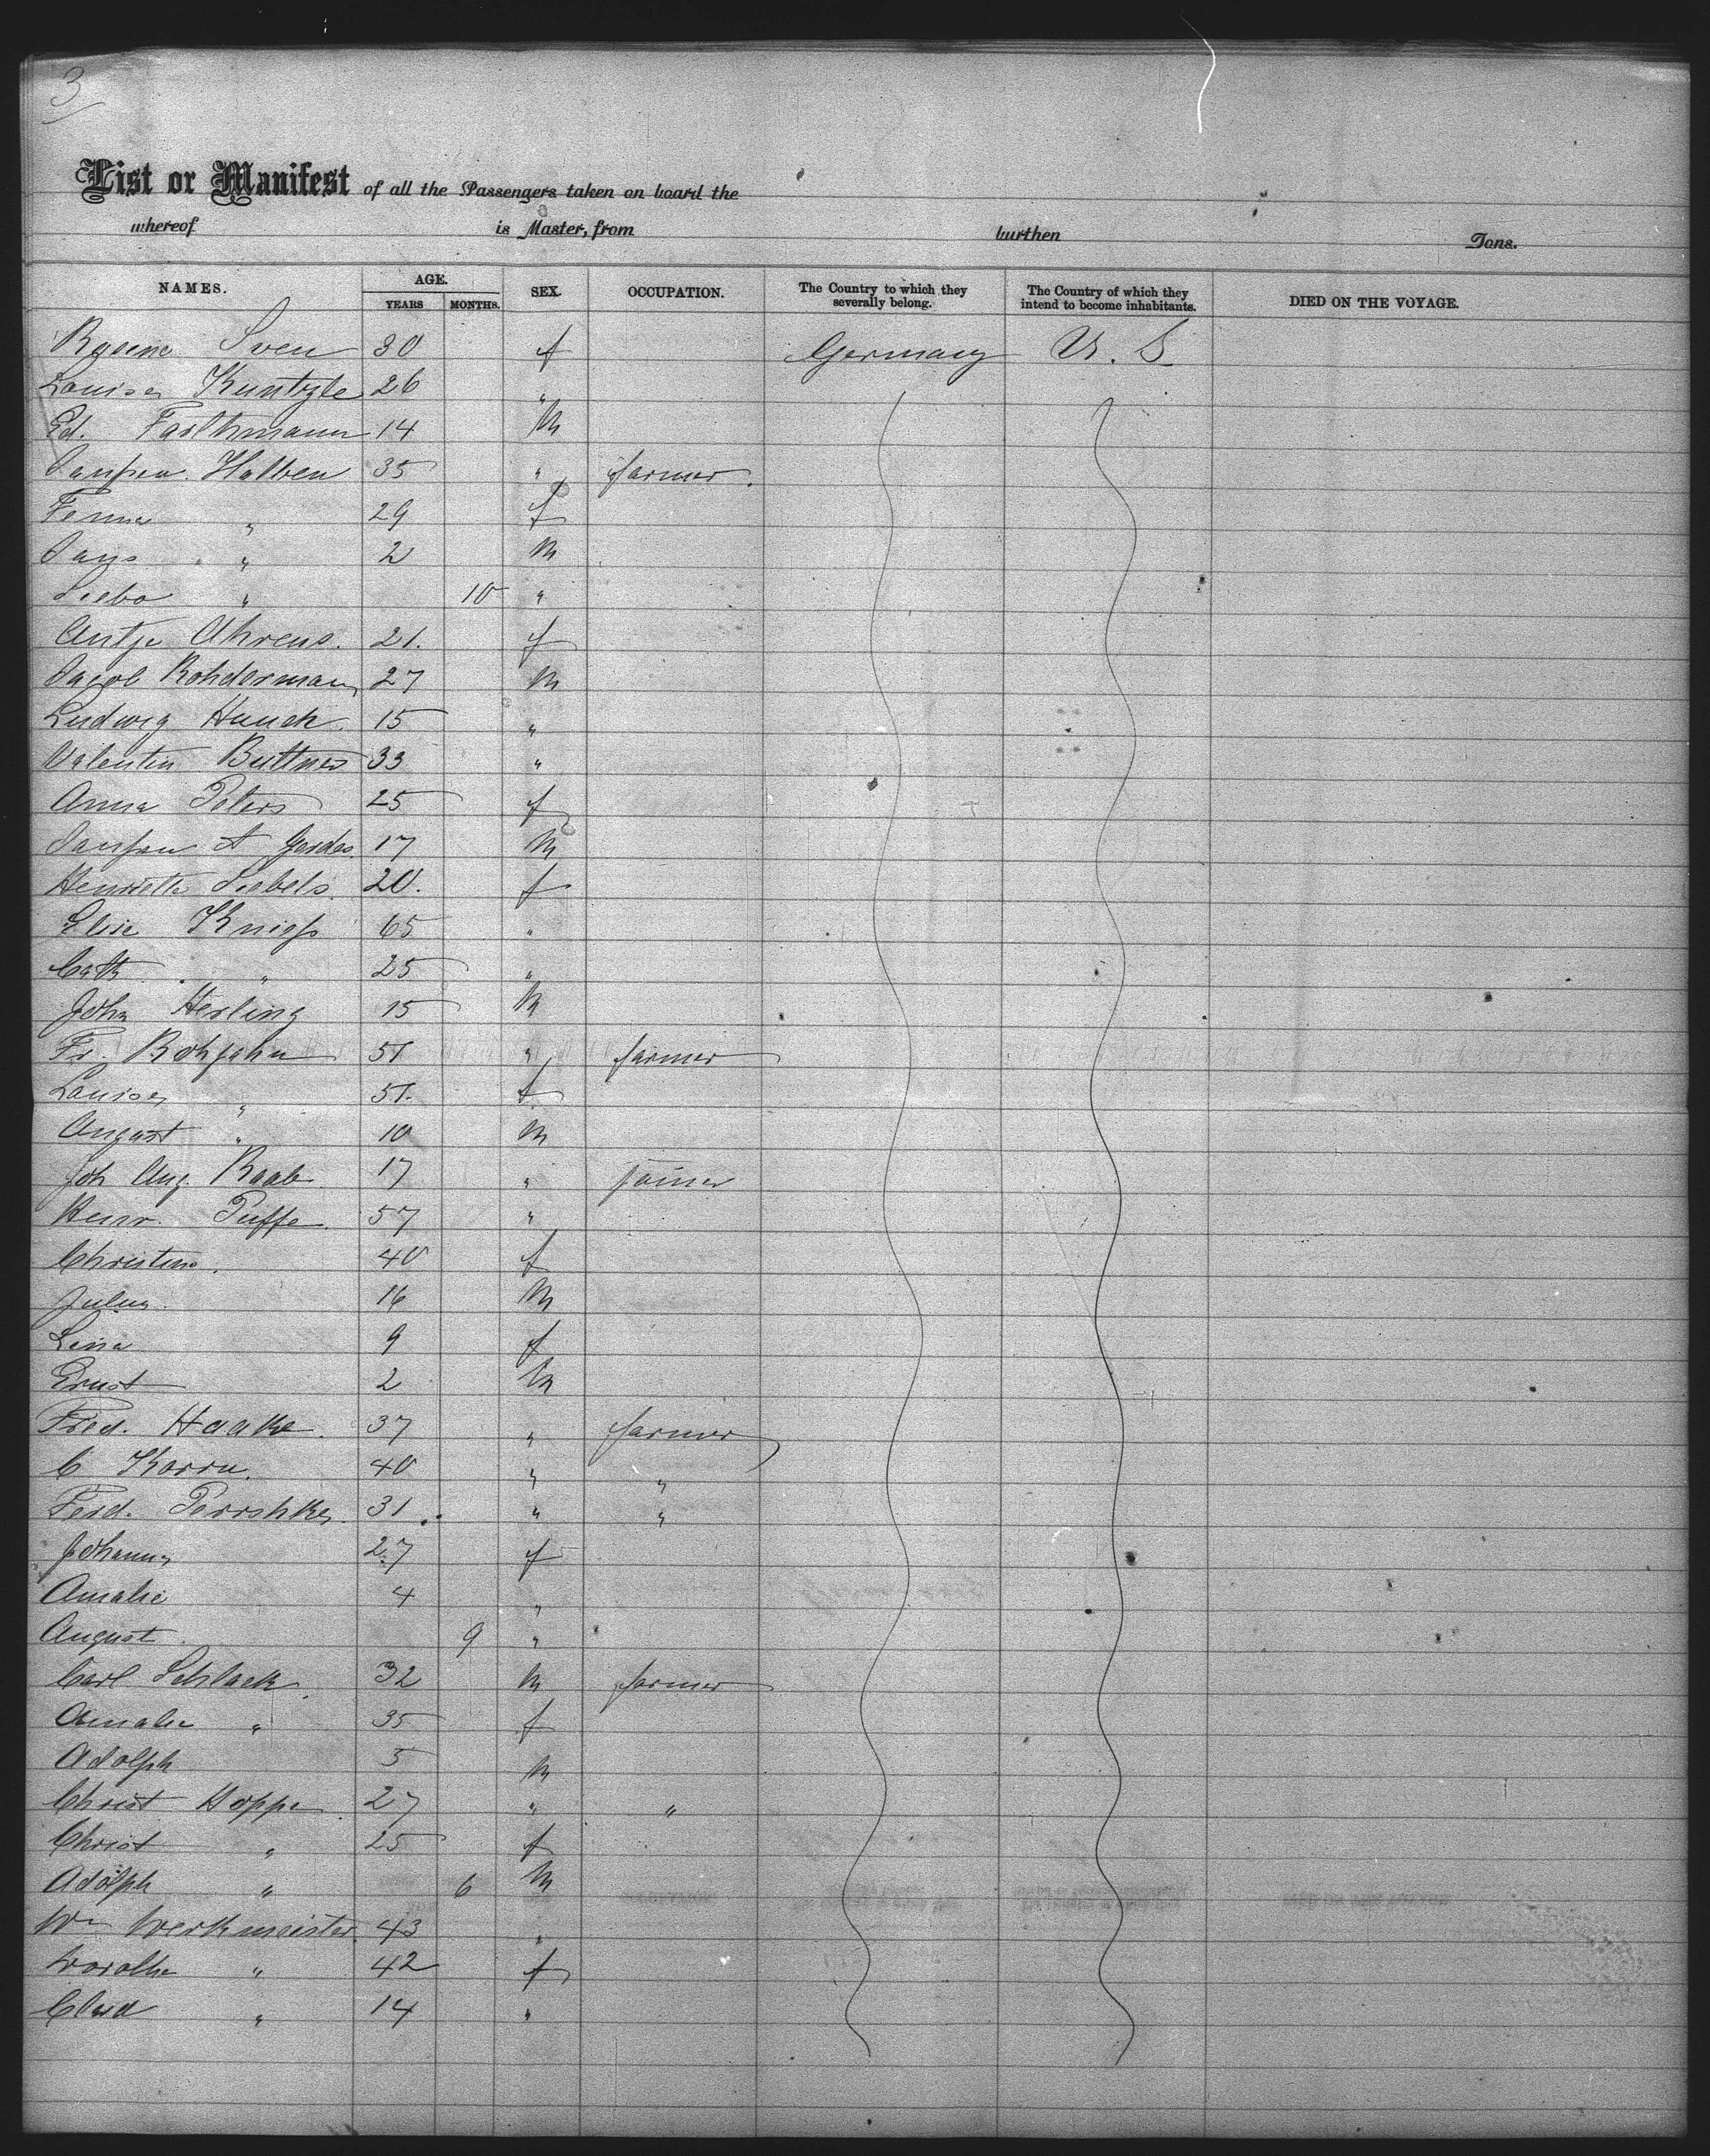 3
List or Manifest of all the Passengers taken on board the
whereof is Master, from burthen Tons.
NAMES. AGE. YEARS MONTHS. SEX. OCCUPATION. The Country to which they severally belong. The Country of which they intend to become inhabitants. DIED ON THE VOYAGE.
Sven 30 f Germany U. S
Louise Kuntzle 26 "
Ed. Farthmann 14 M
Janssen Halben 35 " farmer.
Femna " 29 f
Jans " 2 M
Siebo " 10 "
Antje Ahrens. 21. f
Jacob Rohderman 27 M
Ludwig Hauck 15 "
Valentin Buttner 33 "
Anna Peters 25 f
Janssen A Gerdes 17 M
Henriette Siebels 20. f
Elise Knigss 65 "
Cath " 25 "
John Herling 15 M
Fr. Rohjahn 51 " farmer
Louise " 51. f
August " 10 M
Joh Aug. Raab. 17 " joiner
Henr. Puffe. 57 "
Christine. 40 f
Julius. 16 M
Lina 9 f
Ernst 2 M
Fried. Haake. 37 " farmer
C Korru. 40 " "
Ferd. Perrshke. 31. " "
Johanna 27 f
Amalie 4 "
August. 9 "
Carl Schlack. 32 M farmer
Amalie " 35 f
Adolph 5 M
Christ Hoppe. 27 " "
Christ " 25 f
Adolph " 6 M
Wm Werkmeister. 43 "
Dorothe " 42 f
" 14 "